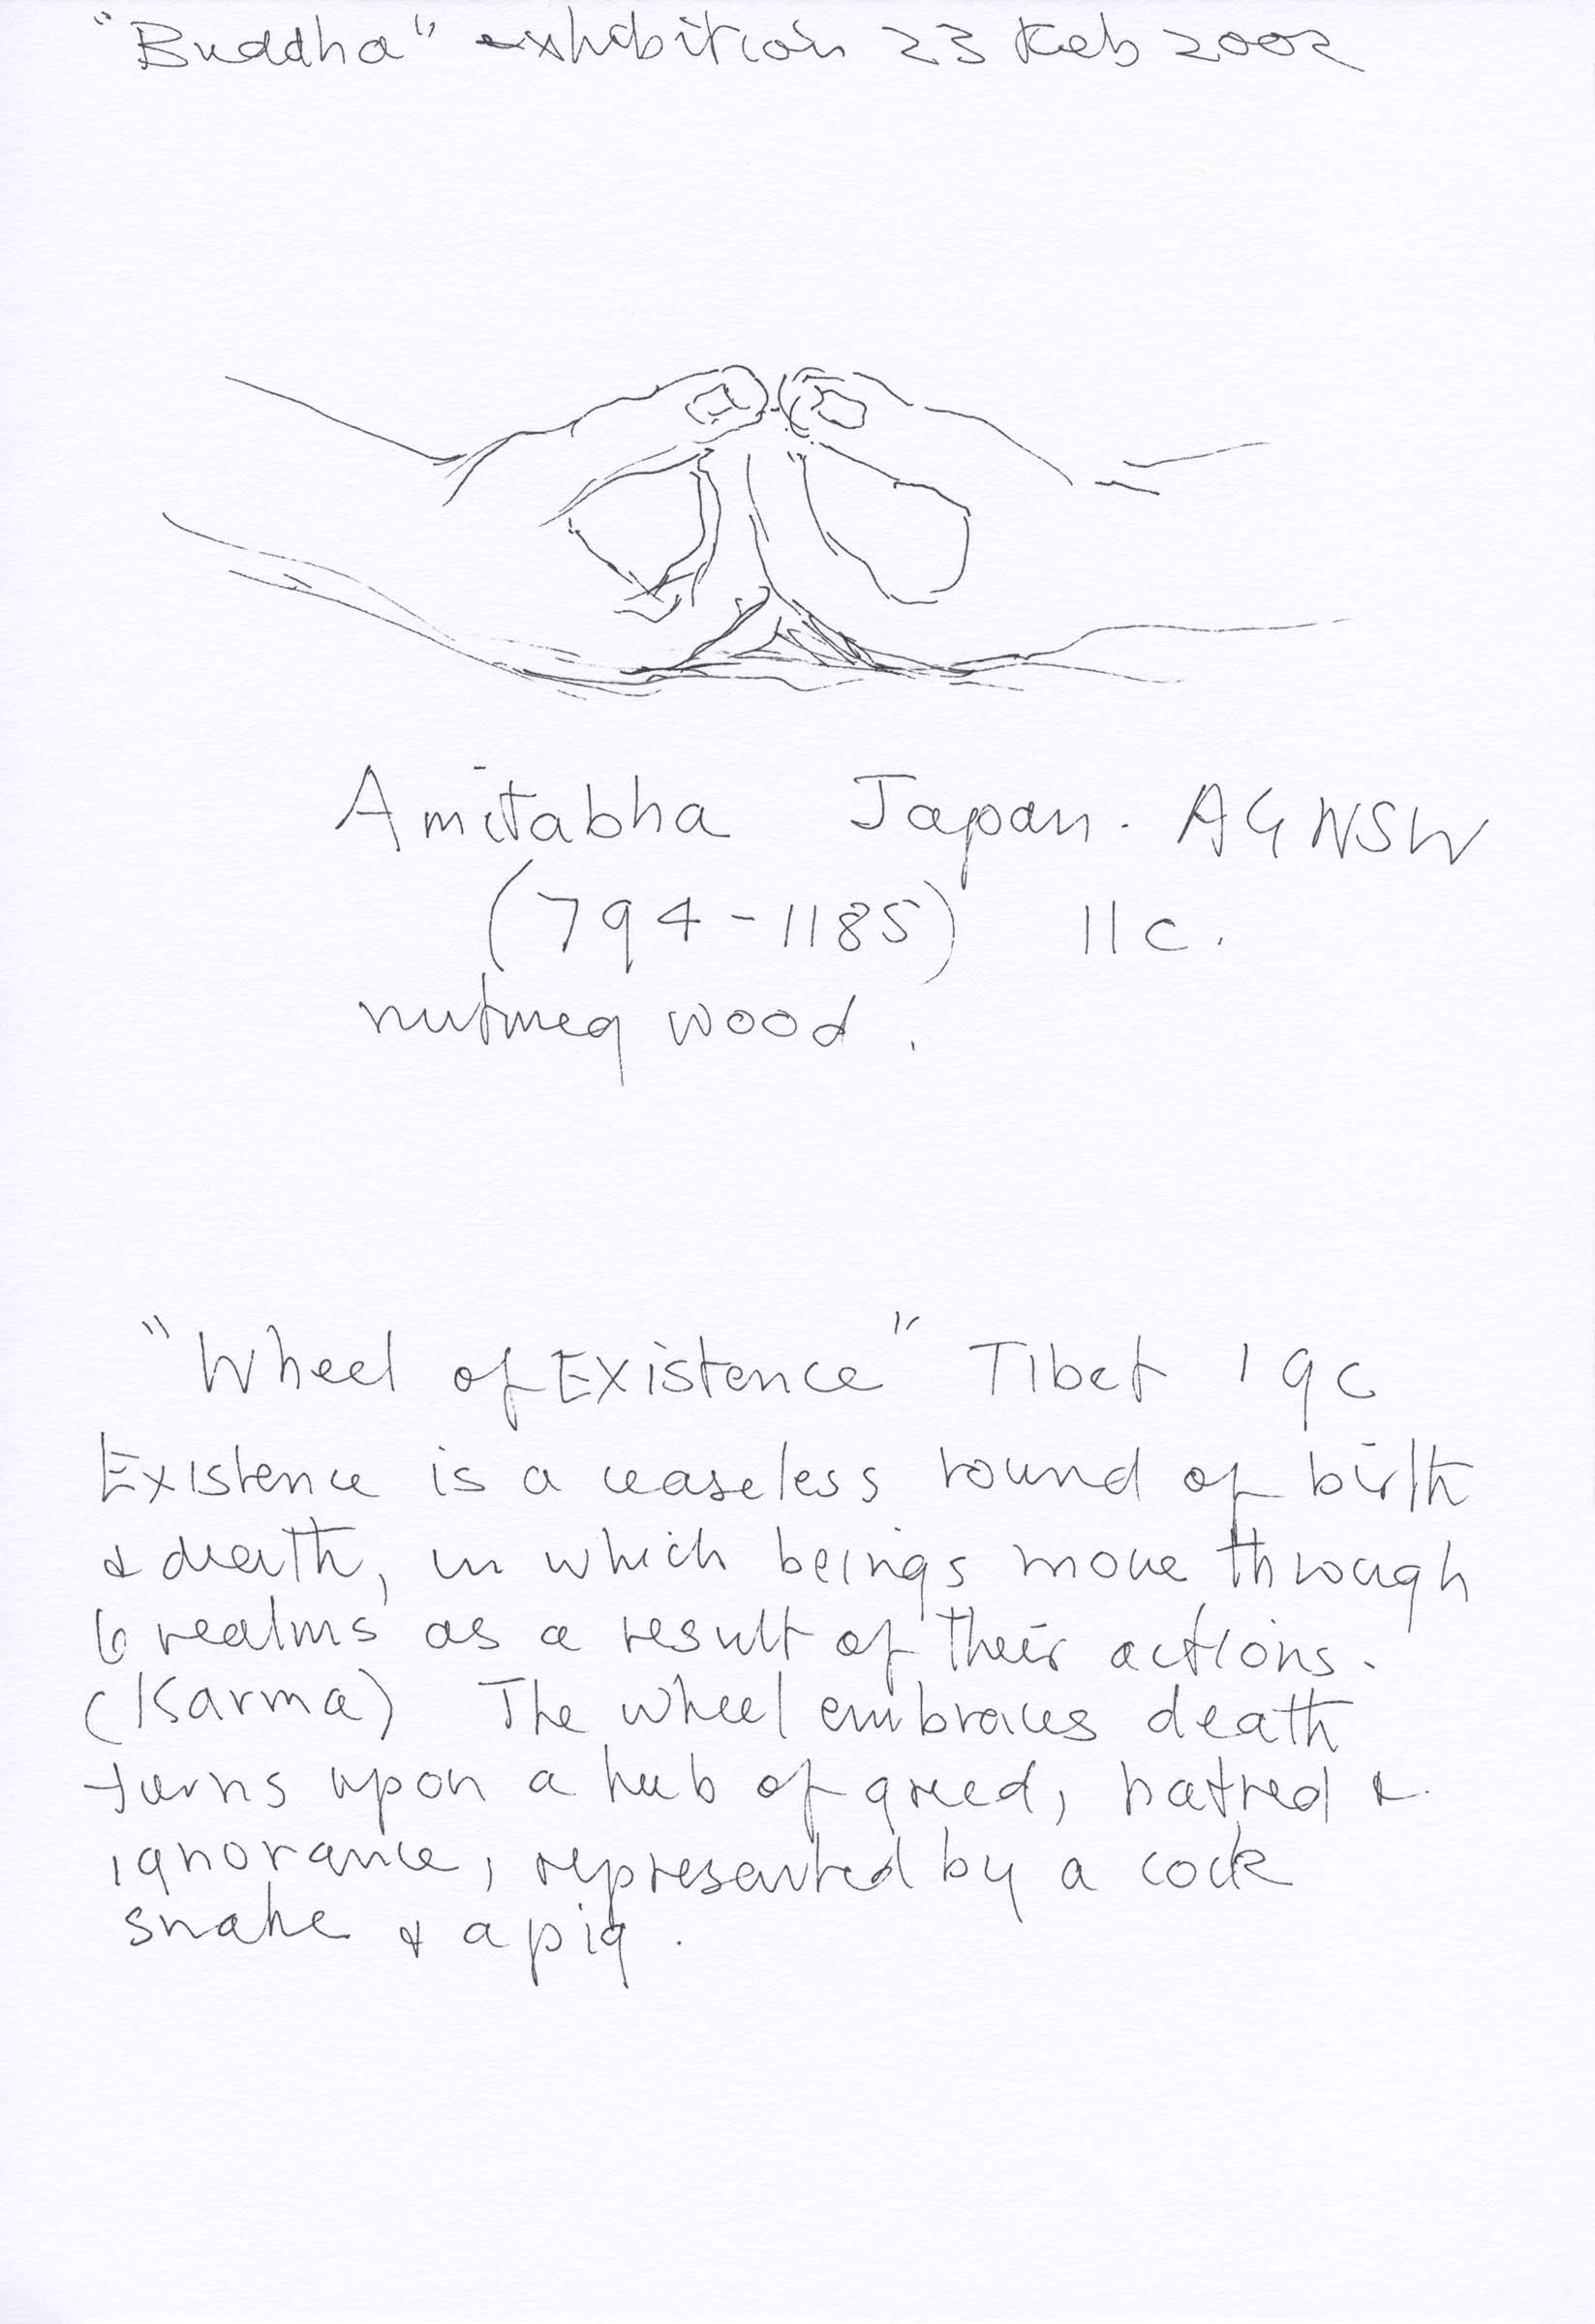 "Buddha" exhibition 23 Feb 2002
Amitabha Japan. AGNSW
(794-1185) 11c.
nutmeg wood.
"Wheel of Existence" Tibet 19c
Existence is a ceaseless round of birth
& death, in which beings move through
6 realms as a result of their actions.
(Karma) The wheel embraces death
turns upon a hub of greed, hatred &
ignorance, represented by a cock
snake & a pig.